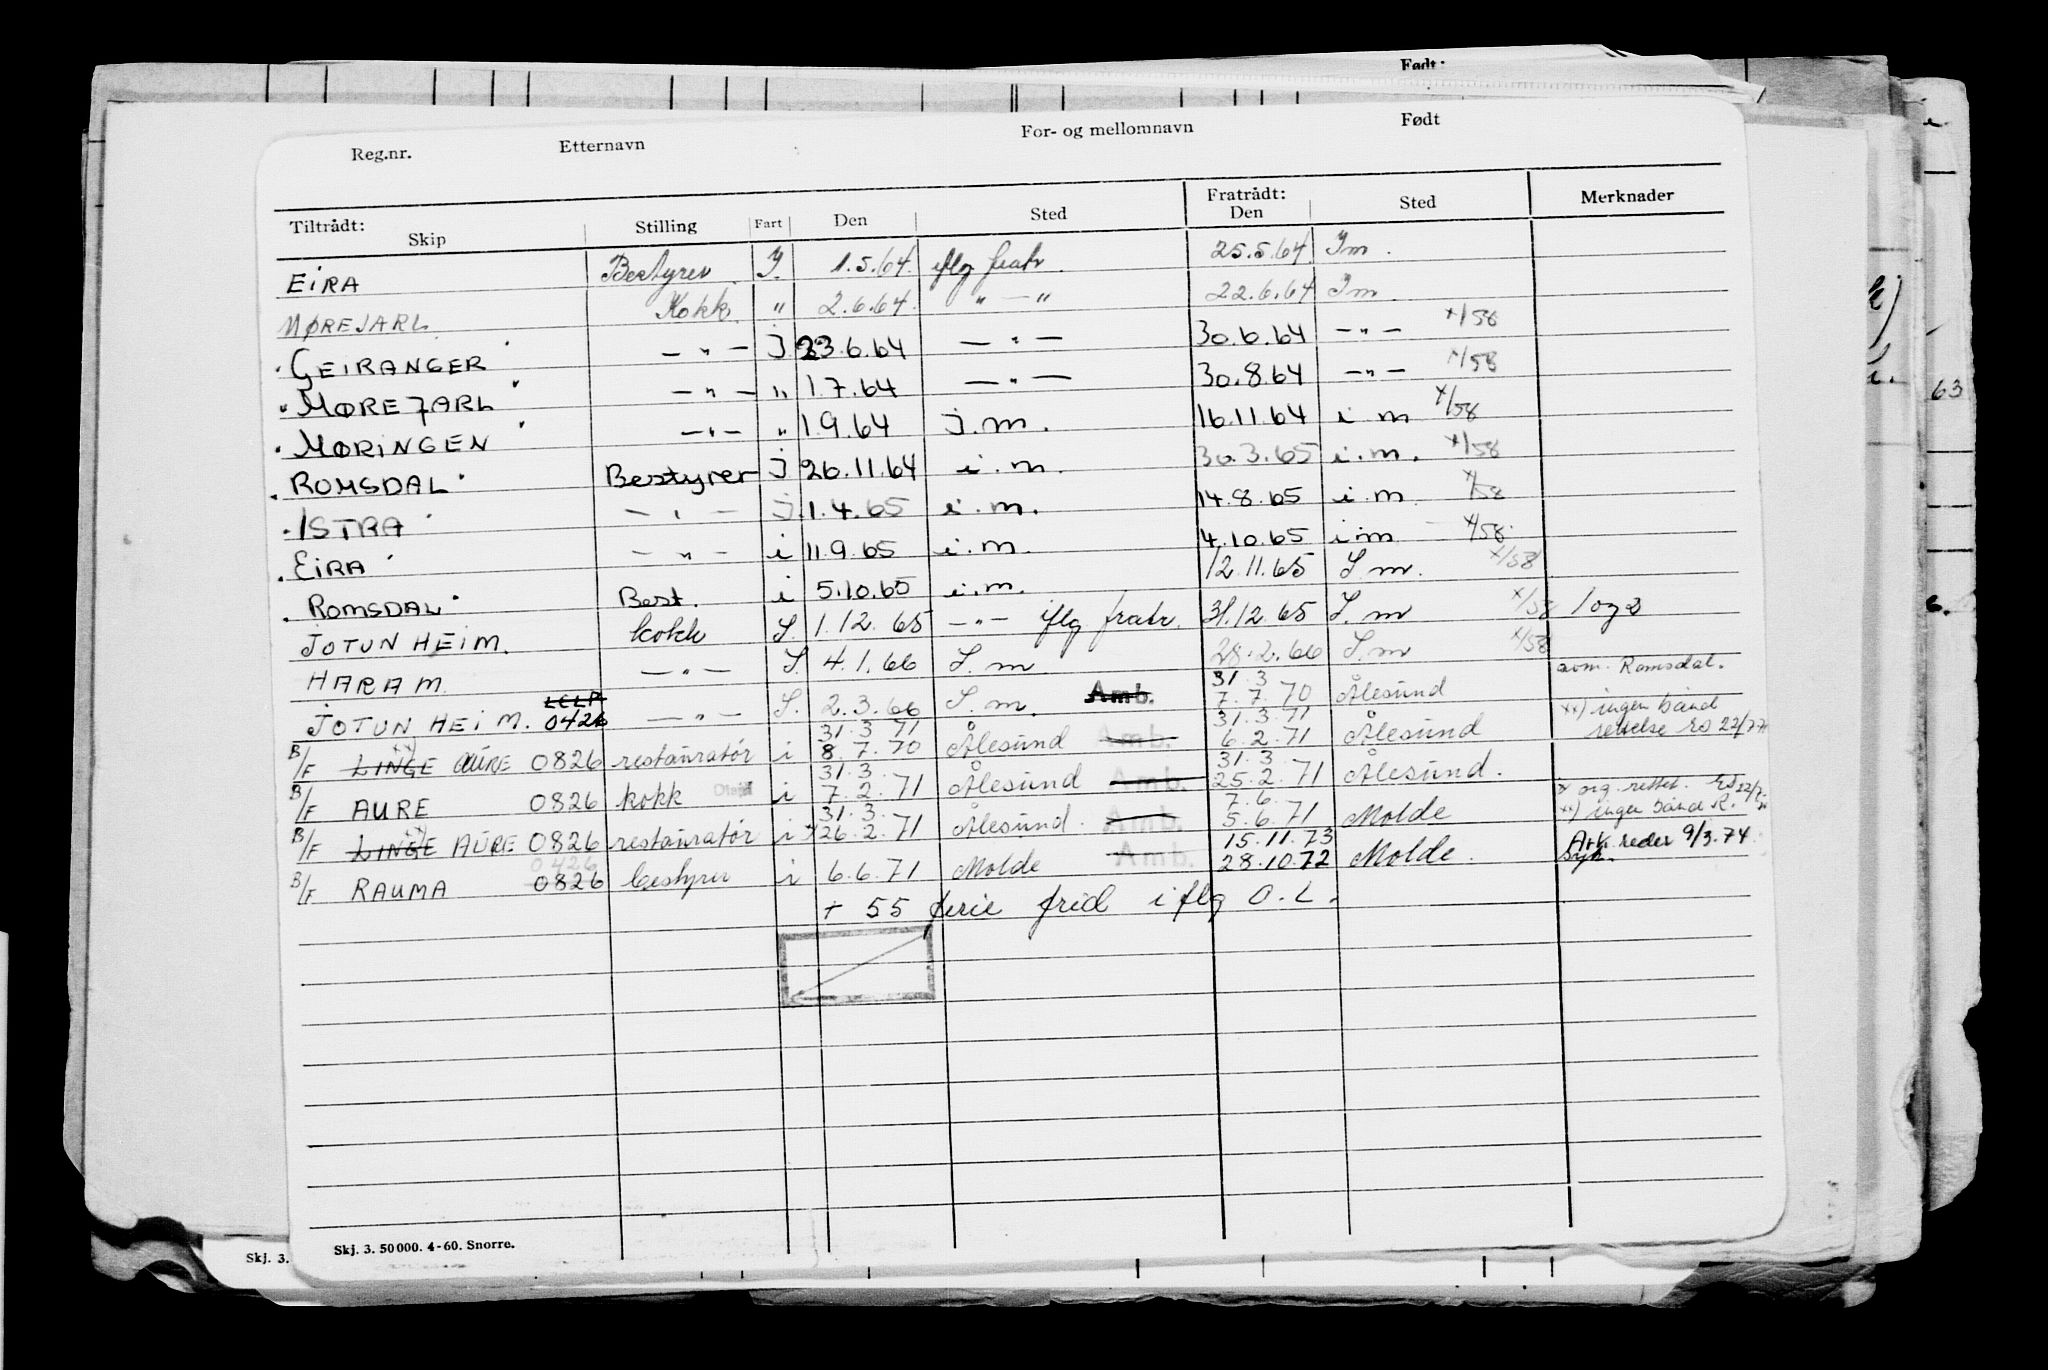 Født:
Reg.nr. Etternavn For- og mellomnavn Født
Tiltrådt: Fratrådt:
Skip Stilling Fart Den Sted Den Sted Merknader
EIRA Bestyrer J. 1.5.64. iflg fratr. 25.5.64. Im.
MØREJARL Kokk. " 2.6.64. " — " 22.6.64 Im.
GEIRANGER — " — J 23.6.64 — " — 30.6.64 — " — x/58
MØREJARL — " — " 1.7.64 — " — 30.8.64 — " — x/58
MØRINGEN — " — " 1.9.64 J.m. 16.11.64 i m x/58
ROMSDAL Bestyrer J 26.11.64 i.m. 30.3.65 i.m. x/58
ISTRA — " — J. 1.4.65 i.m. 14.8.65 i m x/58
EIRA — " — i 11.9.65 i.m. 4.10.65 i m x/58
ROMSDAL Best. i 5.10.65 i.m. 12.11.65 S.m. x/58
JOTUNHEIM. kokk S. 1.12.65 — " — iflg fratr. 31.12.65 S.m x/58 1 og 2
HARAM — " — S. 4.1.66 S.m 28.2.66 S.m x/58
JOTUNHEIM. 0426 — " — S. 2.3.66 S.m. Amb. 31.3 7.7.70 Ålesund avm. Romsdal.
B/F LINGE AURE 0826 restauratør i 31.3.71 8.7.70 Ålesund Amb. 31.3.71 6.2.71 Ålesund xx) ingen bånd
B/F AURE 0826 kokk i 31.3. 7.2.71 Ålesund Amb. 31.3 25.2.71 Ålesund.
B/F LINGE AURE 0826 restauratør i x 31.3. 26.2.71 Ålesund. Amb. 7.6. 5.6.71 Molde x org. rettet. xx) ingen bånd R.
B/F RAUMA 0426 0826 bestyrer i 6.6.71 Molde Amb. 15.11.73 28.10.72 Molde. Ark reder 9/3.74 Syk.
+ 55 ferie frid iflg O.L.
Skj. 3. 50000. 4-60. Snorre.
Skj. 3.
63